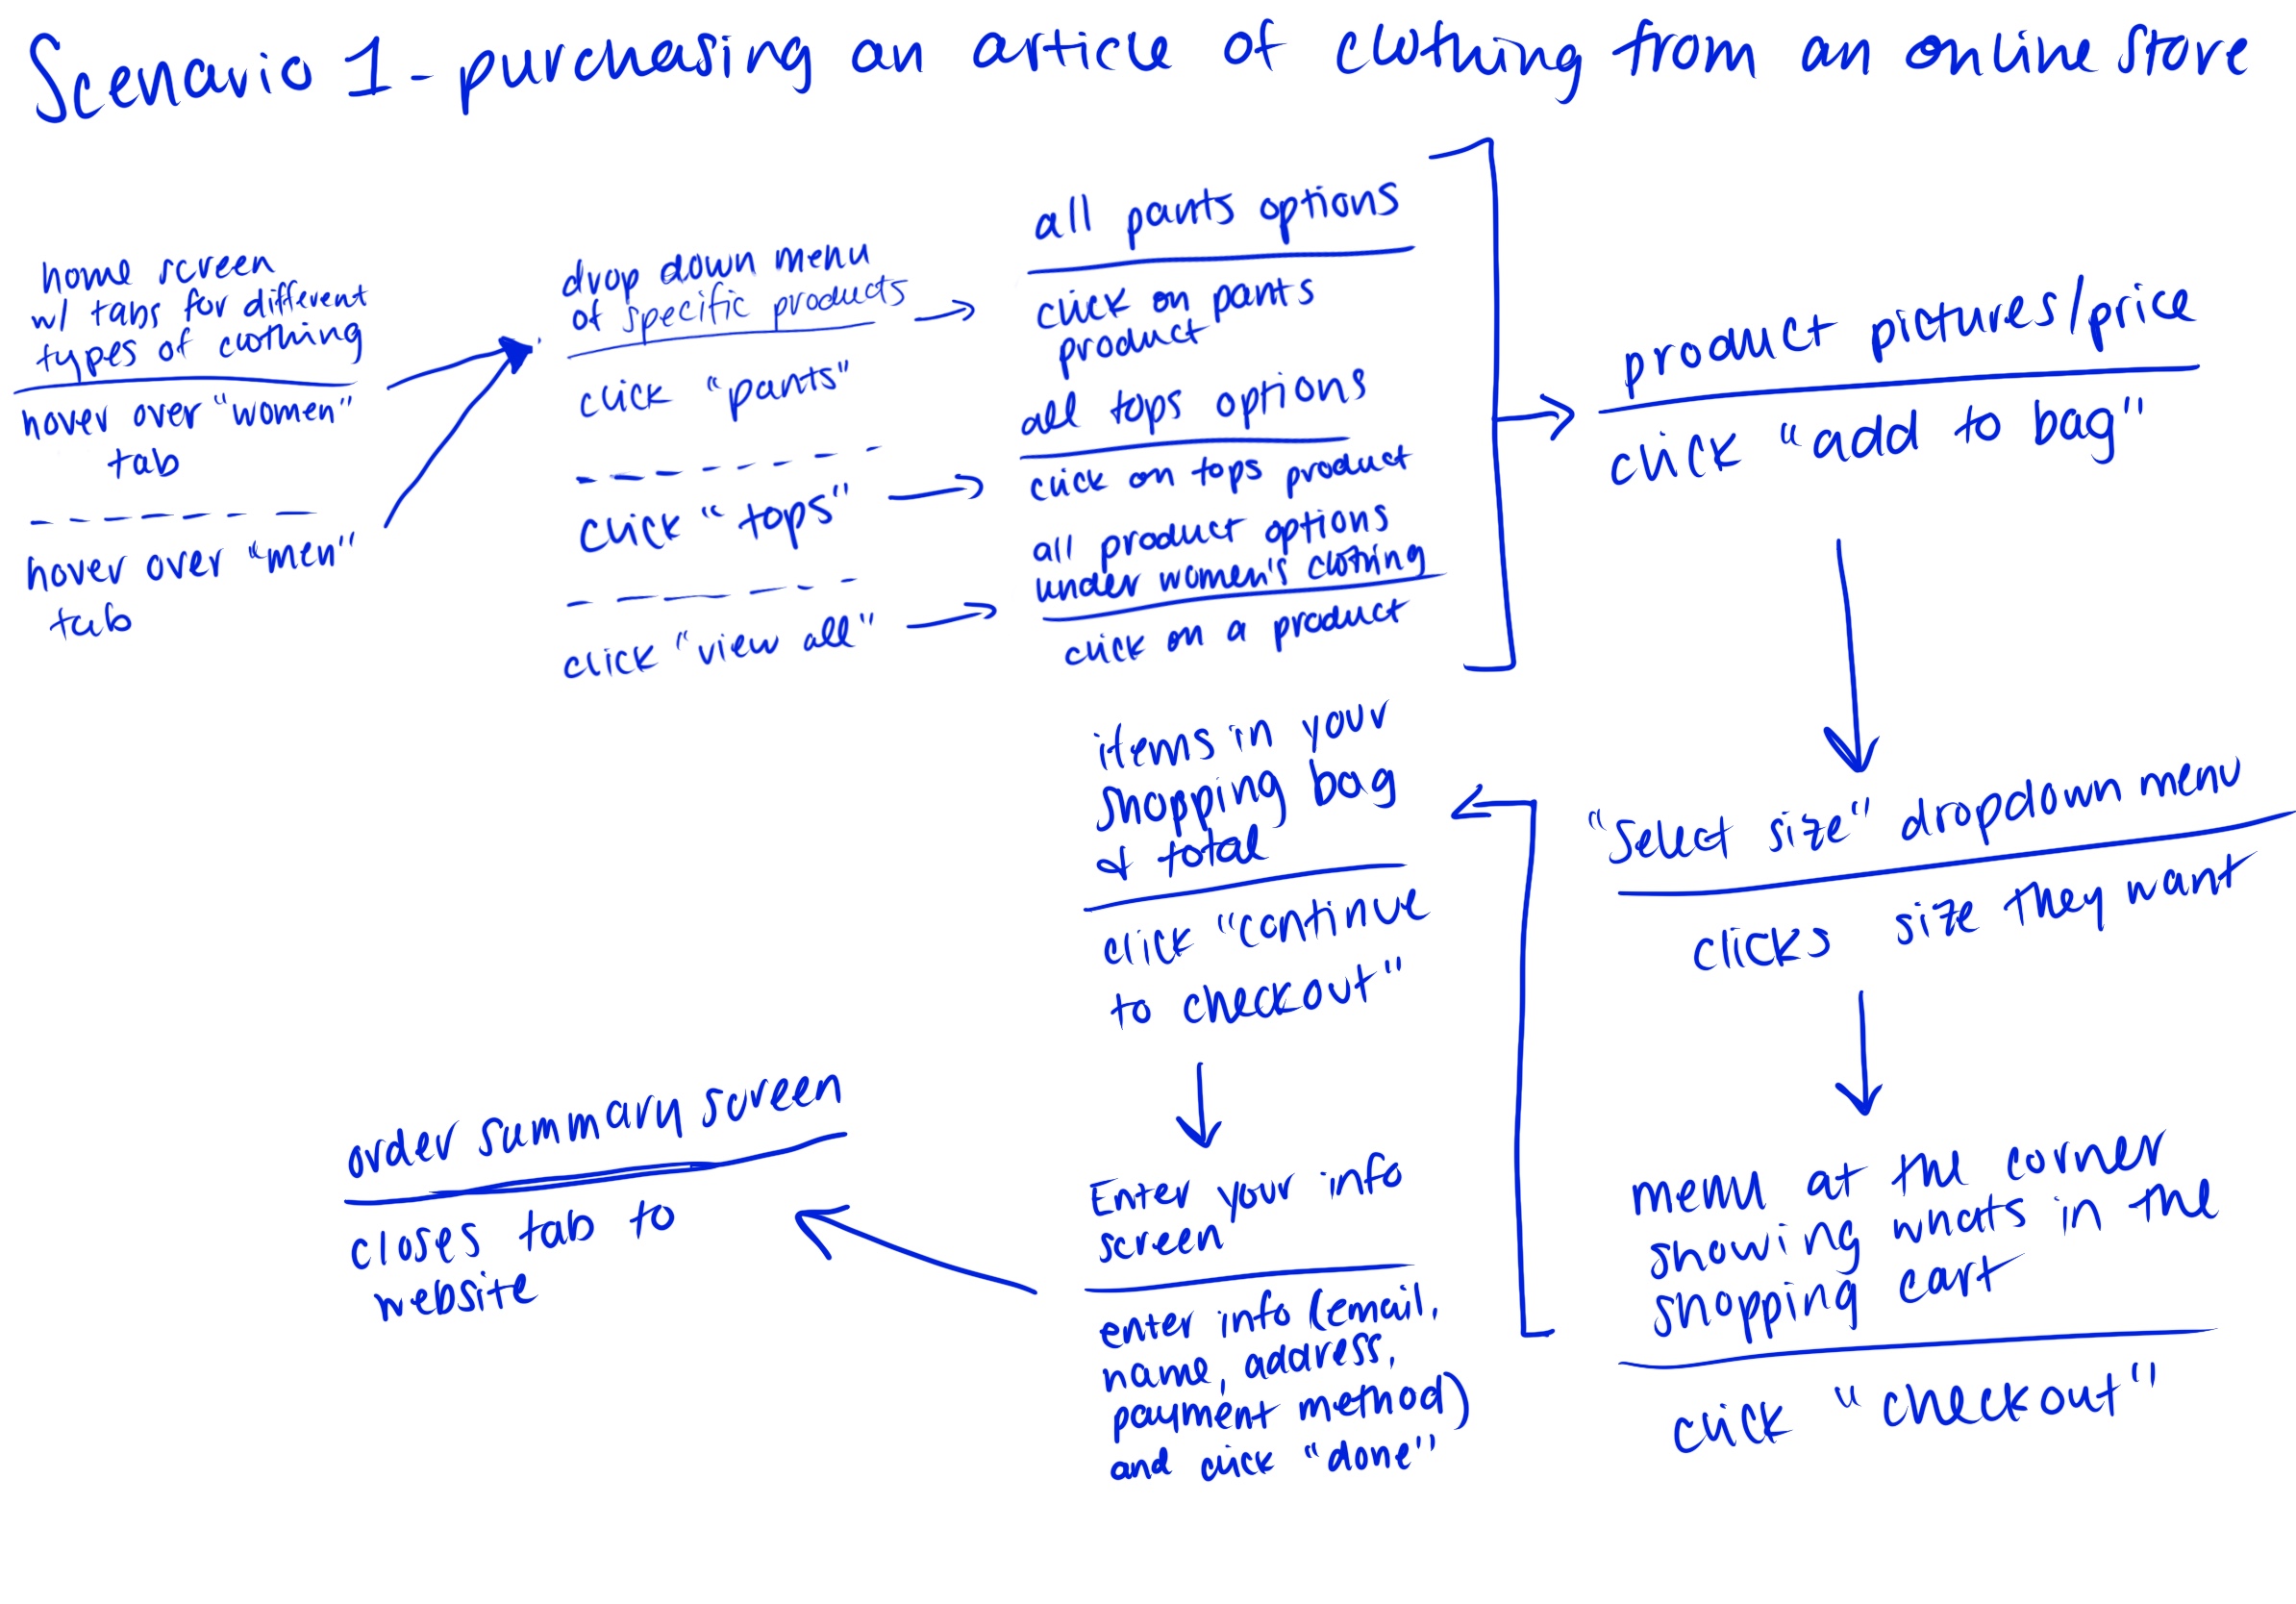 Scenario 1 - purchasing an article of clothing from an online store
home screen
w/ tabs for different
types of clothing
hover over "women"
tab
hover over "men"
tab
drop down menu
of specific products
click "pants"
click "tops"
click "view all"
all pants options
click on pants
product
all tops options
click on tops product
all product options
under women's clothing
click on a product
product pictures/price
click "add to bag"
"Select size" dropdown menu
clicks size they want
menu at the corner
showing whats in the
shopping cart
click "checkout"
items in your
shopping bag
& total
click "continue
to checkout"
Enter your info
screen
enter info (email,
name, address,
payment method)
and click "done"
order summary screen
closes tab to
website